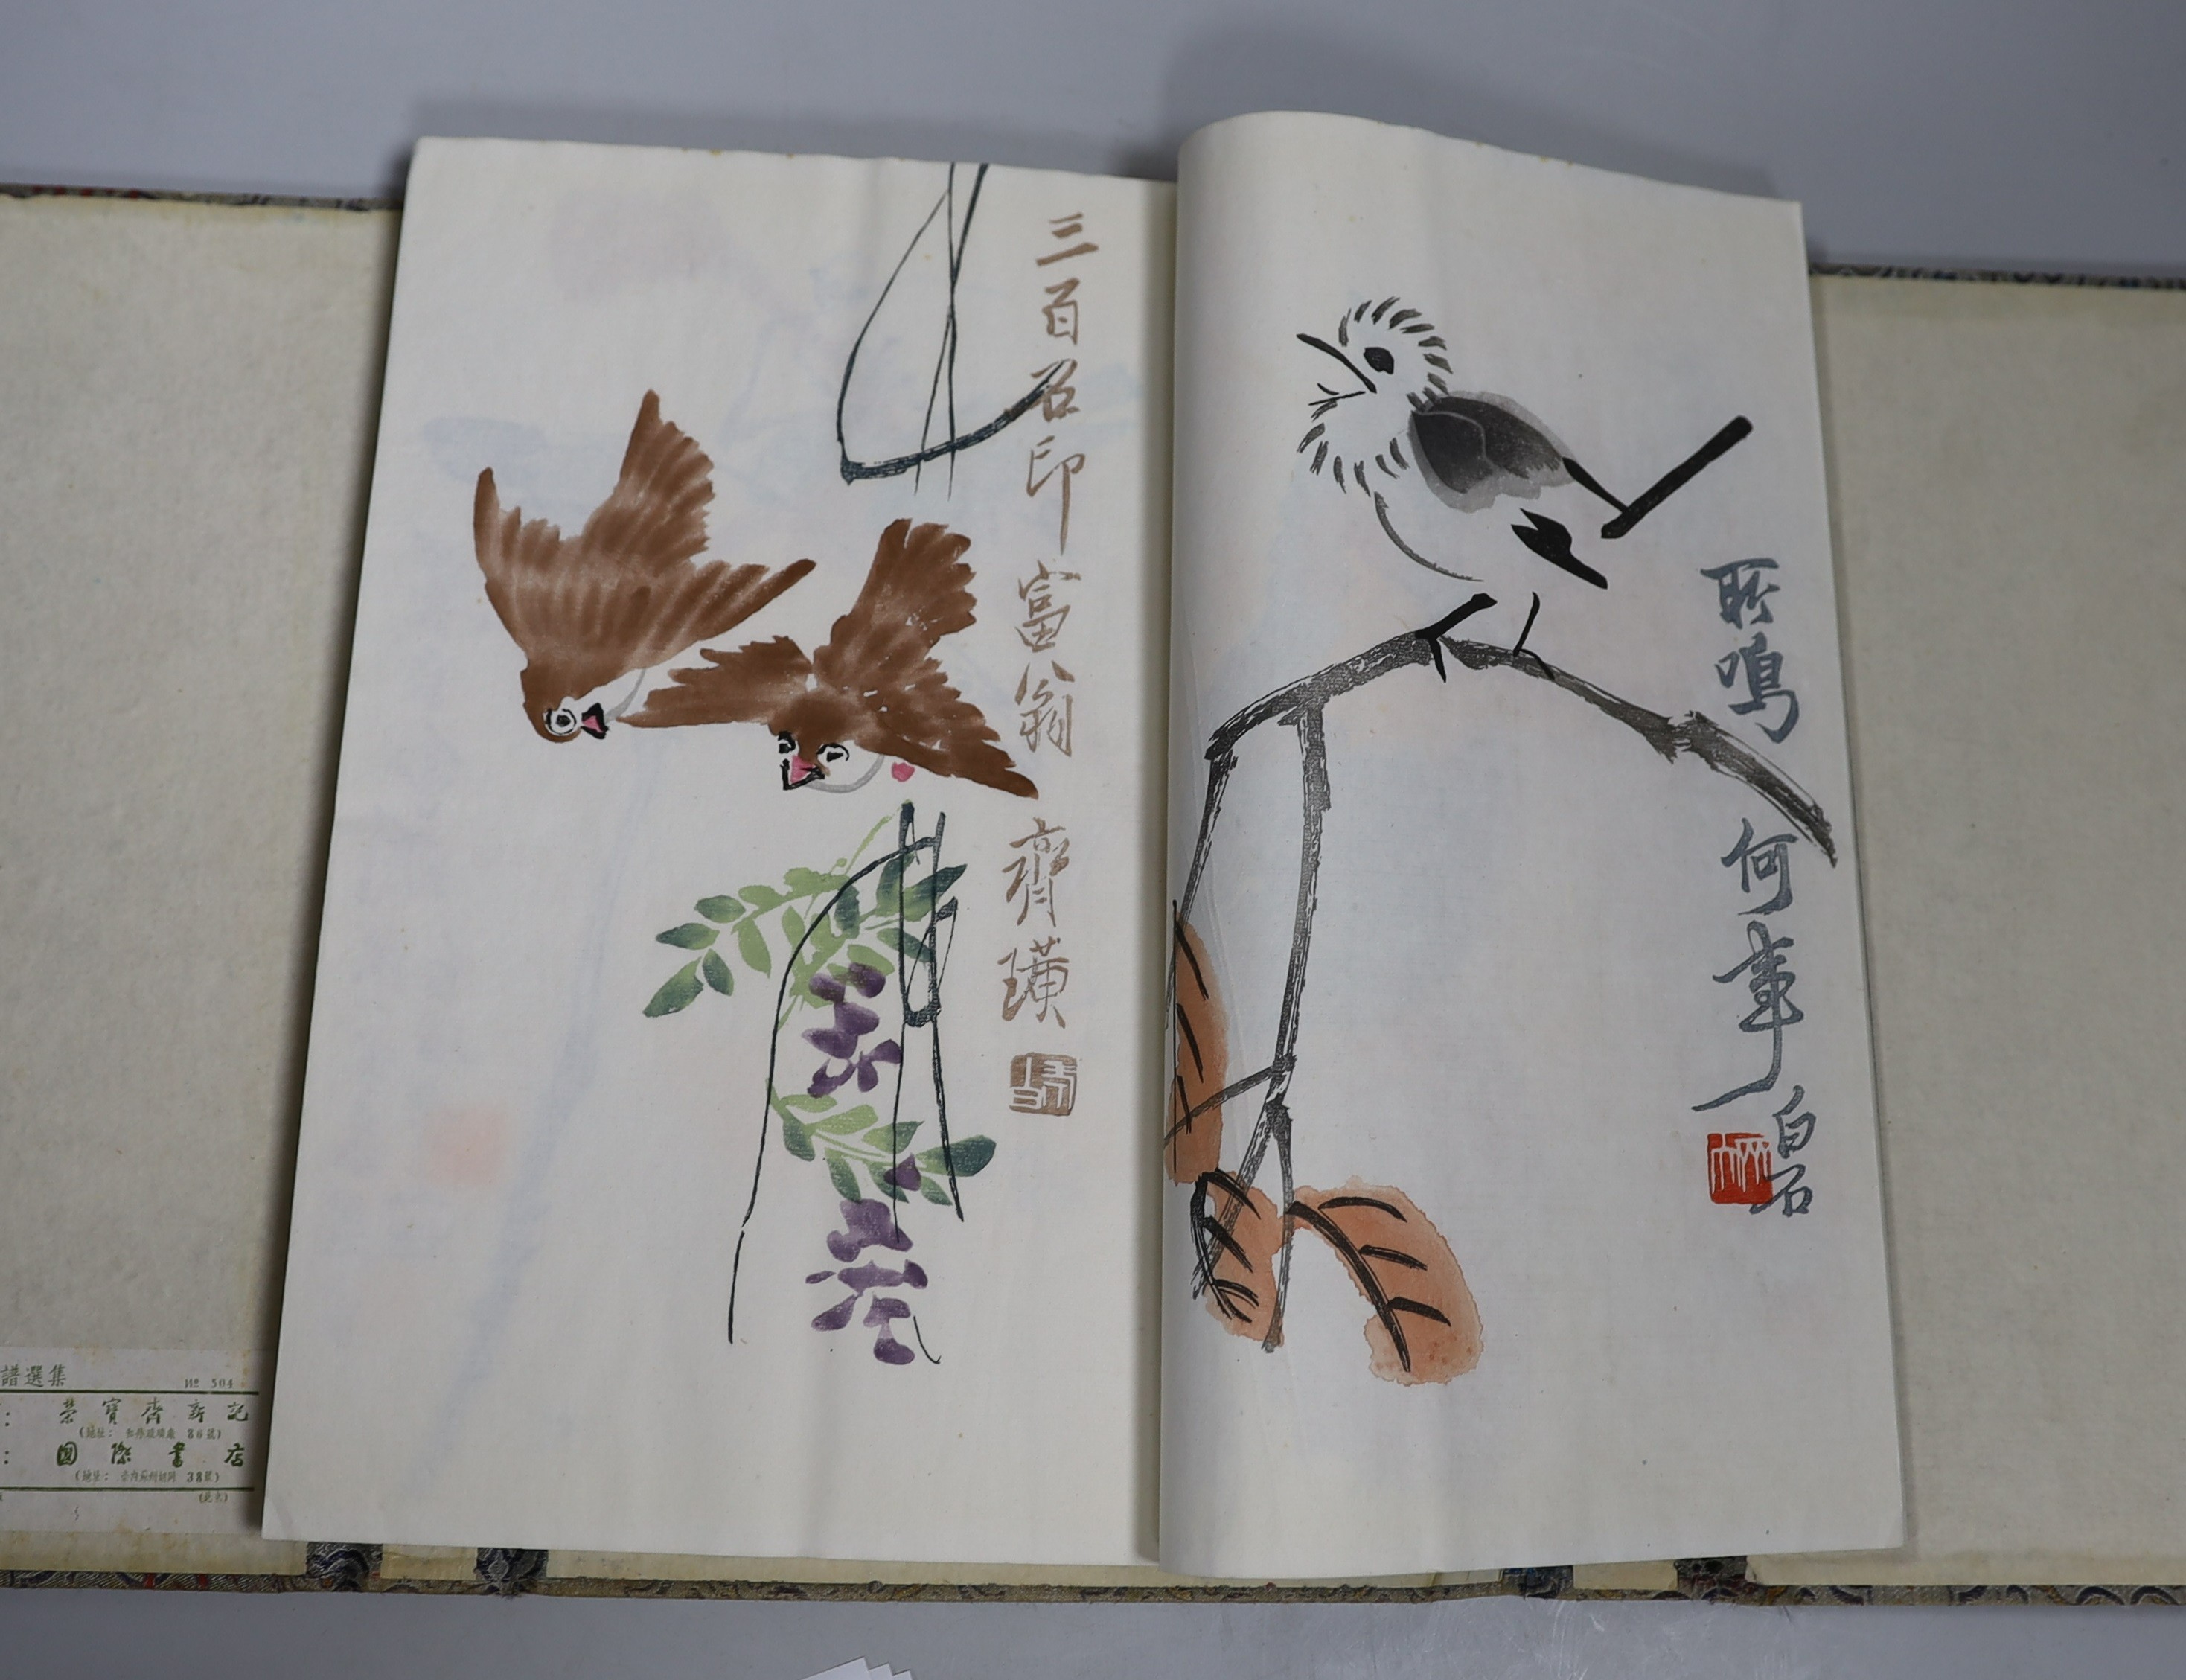 三百石印富翁 齊璜
聒鳴何事
白石
譜選集 № 304
: 榮寶齋新記
86號)
: 國際書店
38號)
(北京)